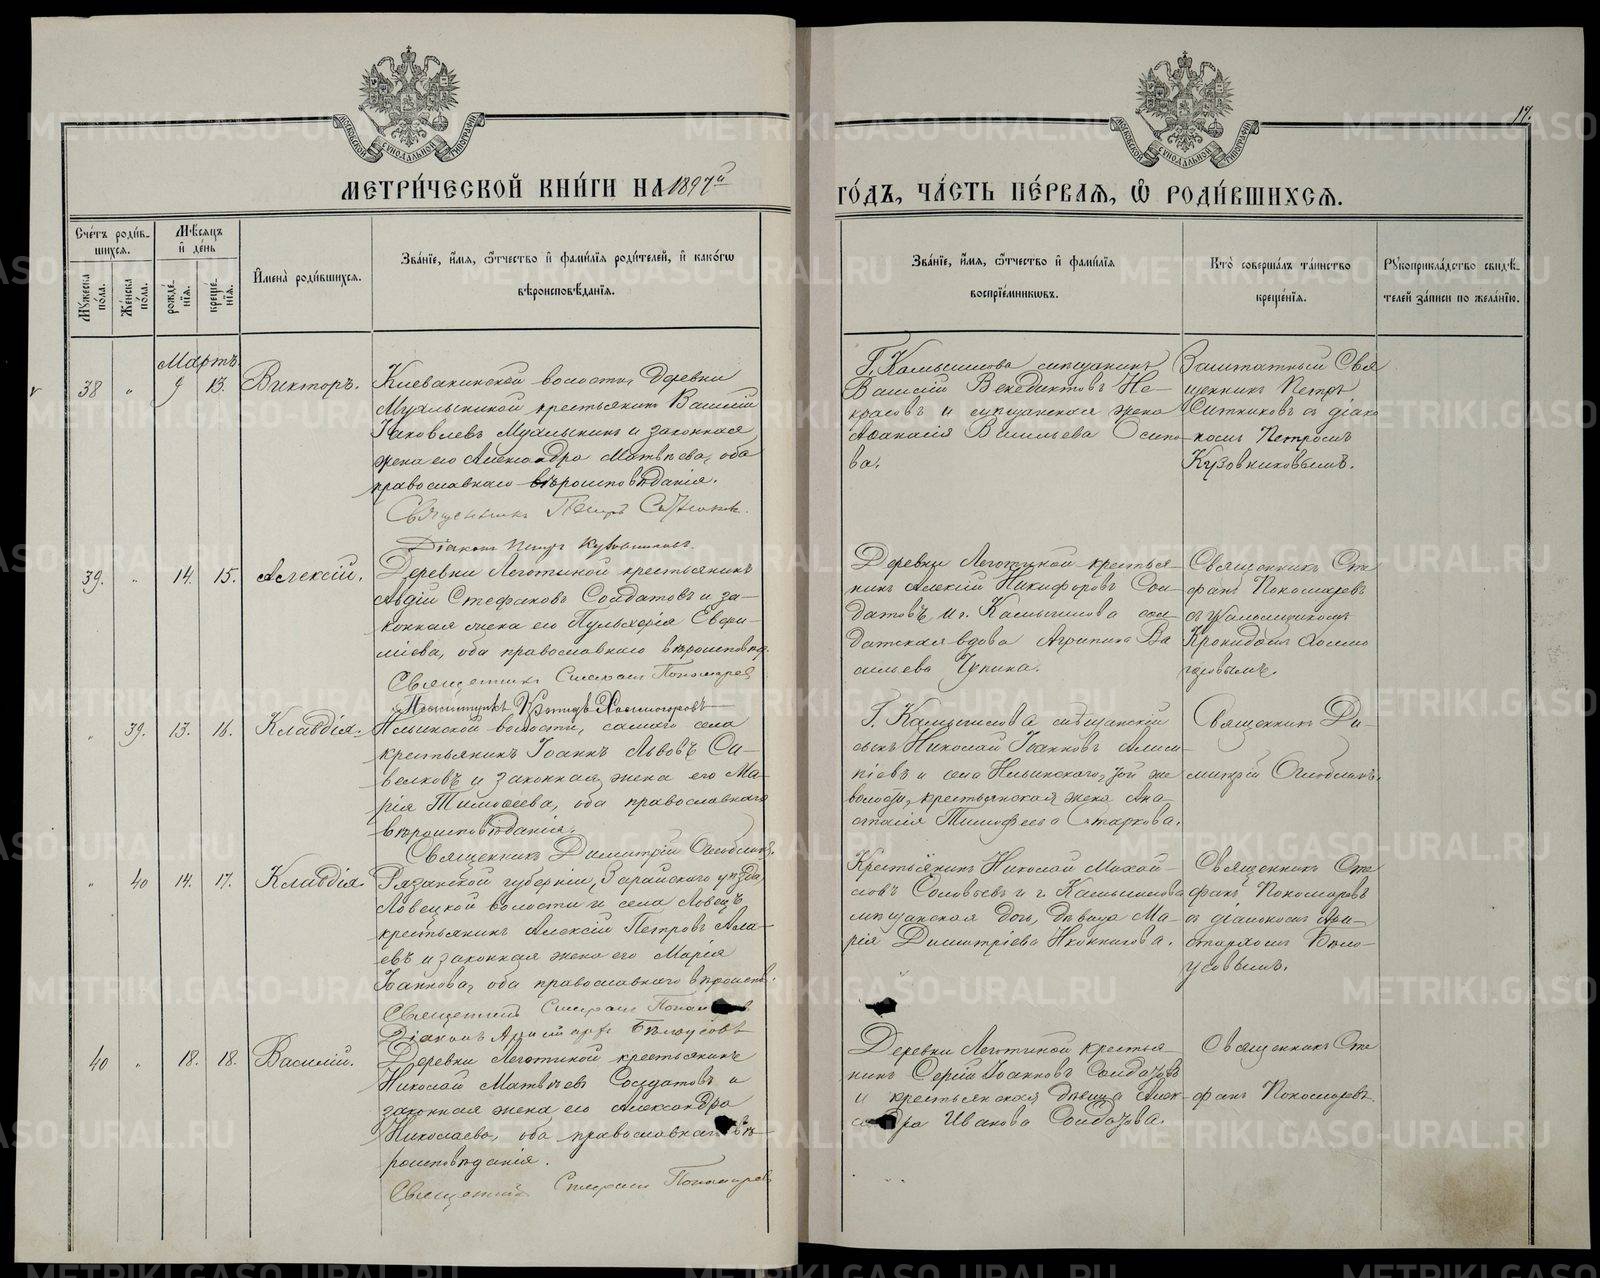 17.
МОСКОВСКОЙ СѴНОДАЛЬНОЙ ТИПОГРАФІИ
МОСКОВСКОЙ СѴНОДАЛЬНОЙ ТИПОГРАФІИ
МЕТРИ́ЧЕСКОЙ КНИ́ГИ НА 1897й
ГО́ДЪ, ЧА́СТЬ ПЕ́РВАЯ, Ѡ РОДИ́ВШИХСЯ.
Сче́тъ роди́в-
шихся.
Мужеска по́ла.
Же́нска по́ла.
Мѣ́сяцъ
и҆ де́нь
рожде́-
нїѧ.
креще́-
нїѧ.
И҆мена̀ роди́вшихся.
Зва́нїе, и҆́мя, ѻ҆́тчество и҆ фами́лїя роди́телей, и҆ како́гѡ
вѣроисповѣ́данїя.
Зва́нїе, и҆́мя, ѻ҆́тчество и҆ фами́лїя
воспрїе́мникѡвъ.
Кто̀ соверша́лъ та́инство
креще́нїя.
Рꙋкоприкла́дство свидѣ́-
телей за́писи по жела́нїю.
Мартъ
38 " 9 13. Викторъ.
Клевакинской волости, деревни
крестьянинъ Василій
Іаковлевъ и законная
жена его Александра Матвѣева, оба
православнаго вѣроисповѣданія.
Священникъ Петръ Ситниковъ.
Діаконъ Петръ Кузовниковъ.
Г. Камышлова мѣщанинъ
Василій Венедиктовъ Не-
красовъ и мѣщанская жена
Аѳанасія Васильева Осипо-
ва.
Заштатный Свя
щенникъ Петръ
Ситниковъ съ діако
номъ Петромъ
Кузовниковымъ.
39. " 14. 15. Алексій.
Деревни Леготиной крестьянинъ
Авдій Стефановъ Солдатовъ и за-
конная жена его Пульхерія Евфи-
міева, оба православнаго вѣроисповѣд.
Священникъ Стефанъ Пономаревъ
Псаломщикъ Кронидъ Холмогоровъ
Деревни Леготиной крестья-
нинъ Алексій Никифоровъ Сол-
датовъ и г. Камышлова сол-
датская вдова Агрипина Ва
сильева
Священникъ Сте
фанъ Пономаревъ
съ псаломщикомъ
Кронидомъ Холмо
горовымъ.
" 39. 13. 16. Клавдія.
Ильинской волости, самаго села
крестьянинъ Іоаннъ Львовъ Са-
велковъ и законная жена его Ма-
рія Тимоѳеева, оба православнаго
вѣроисповѣданія.
Священникъ Димитрій
Г. Камышлова мѣщанскій
сынъ Николай Іоанновъ Алим-
піевъ и села Ильинскаго, той же
волости, крестьянская жена Ана
стасія Тимофеева Старкова.
Священникъ Ди-
митрій
" 40 14. 17. Клавдія.
Рязанской губерніи, Зарайскаго уѣзда,
Ловецкой волости и села Ловецъ
крестьянинъ Алексій Петровъ Ала-
евъ и законная жена его Марія
Іоаннова, оба православнаго вѣроисп.
Священникъ Стефанъ
Діаконъ Аристархъ Бѣлоусовъ
Крестьянинъ Николай Михай-
ловъ Соловьевъ и г. Камышлова
мѣщанская дочь, дѣвица Ма-
рія Димитріева Иконникова.
Священникъ Сте
фанъ Пономаревъ
съ діакономъ Ари-
стархомъ Бѣло-
усовымъ.
40 " 18. 18. Василій.
Деревни Леготиной крестьянинъ
Николай Матвѣевъ Солдатовъ и
законная жена его Александра
Николаева, оба православнаго вѣ-
роисповѣданія.
Священникъ Стефанъ Пономаревъ
Деревни Леготиной крестья-
нинъ Сергій Іоанновъ Солдатовъ
и крестьянская дѣвица Алек-
сандра Иванова Солдатова.
Священникъ Сте
фанъ Пономаревъ.
METRIKI.GASO-URAL.RU